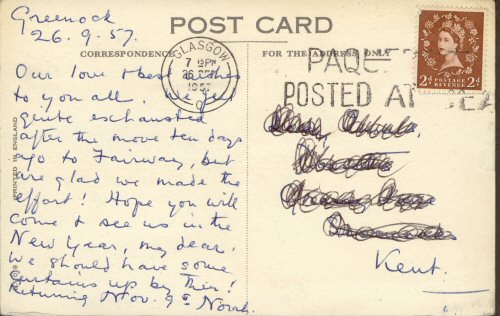 Greenock
26.9.57.
POST CARD
CORRESPONDENCE
FOR THE ADDRESS ONLY
GLASGOW
7 15 PM
26 SEP
1957
PAQUE
POSTED AT SEA
2d POSTAGE REVENUE 2d
PRINTED IN ENGLAND
Our love & best wishes
to you all. We feel
quite exhausted
after the move ten days
ago to Fairway, but
are glad we made the
effort! Hope you will
come & see us in the
New Year, my dear.
We should have some
curtains up by then!
Returning Nov. 9th Norah.
Kent.